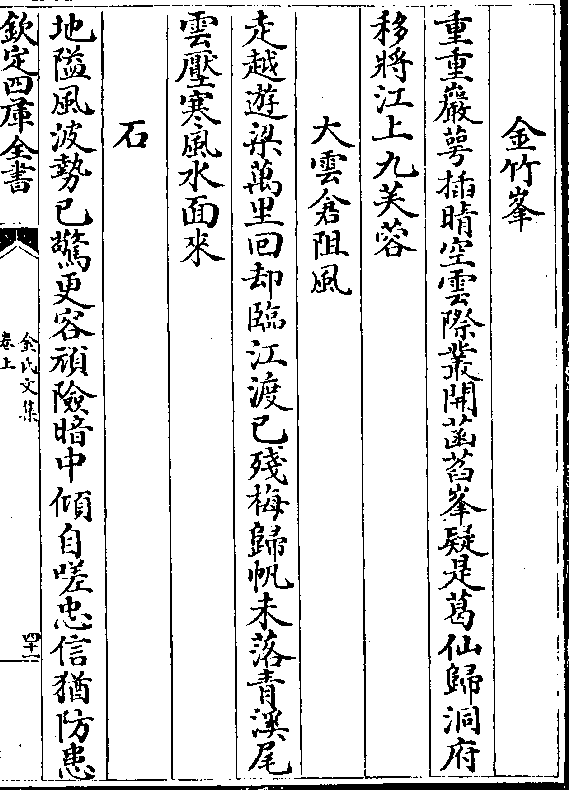 金竹峯
重重巖萼插晴空雲際叢開菡萏峯疑是葛仙歸洞府
移將江上九芙蓉
大雲倉阻風
走越遊梁萬里回却臨江渡已殘梅歸帆未落青溪尾
雲壓寒風水面來
石
地隘風波勢已驚更容頑險暗中傾自嗟忠信猶防患
欽定四庫全書
金氏文集
卷上
四十一